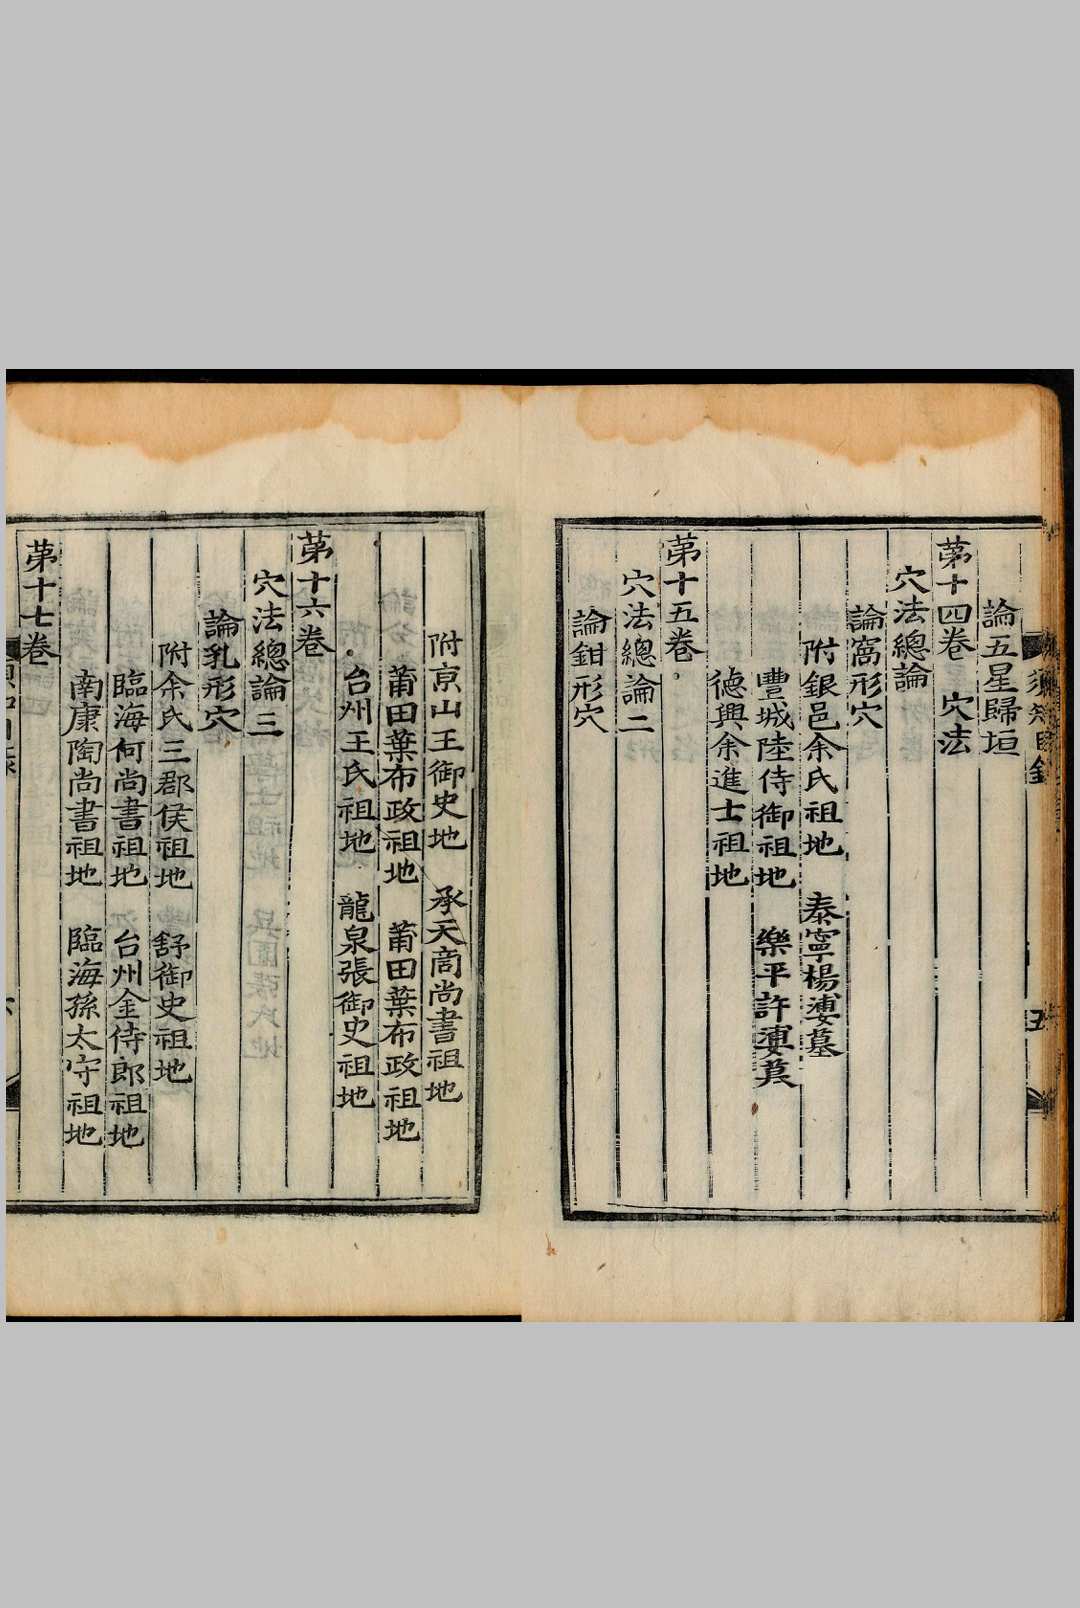 須知目錄
五
論五星歸垣
第十四卷　穴法
穴法總論
論窩形穴
附銀邑余氏祖地　泰寧楊婆墓
豐城陸侍御祖地　樂平許婆墓
德興余進士祖地
第十五卷
穴法總論二
論鉗形穴
附京山王御史地　承天商尚書祖地
莆田葉布政祖地　莆田葉布政祖地
台州王氏祖地　龍泉張御史祖地
第十六卷
穴法總論三
論乳形穴
附余氏三郡侯祖地　舒御史祖地
臨海何尚書祖地　台州金侍郎祖地
南康陶尚書祖地　臨海孫太守祖地
第十七卷